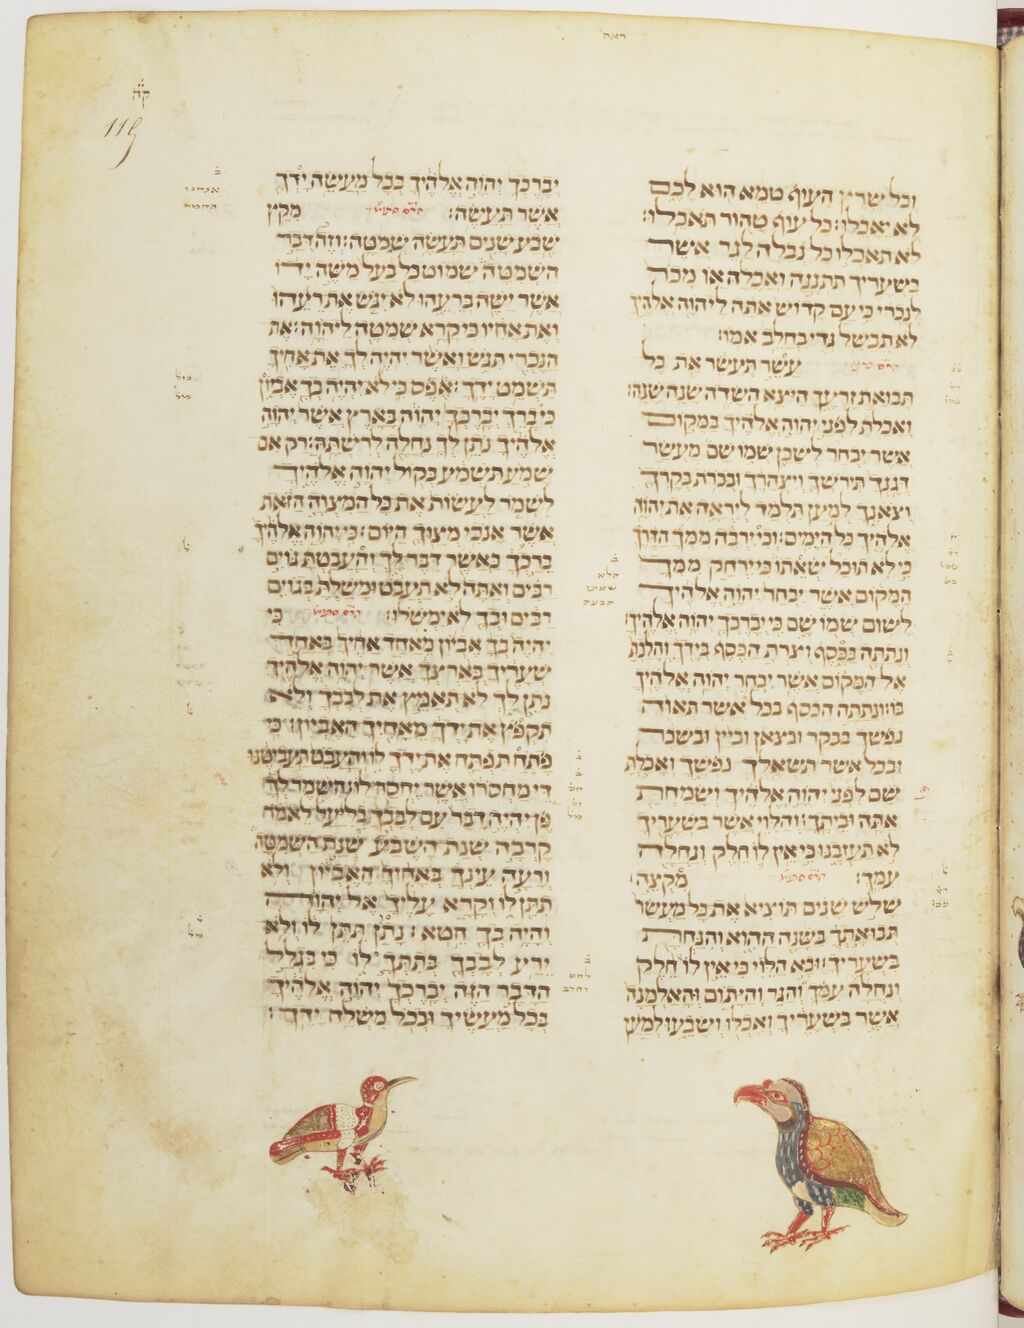 ראה
קה
119
וכל שרץ העוף טמא הוא לכם
לא יאכלו: כל עוף טהור תאכלו:
לא תאכלו כל נבלה לגר אשר
בשעריך תתננה ואכלה או מכר
לנכרי כי עם קדוש אתה ליהוה אלהיך
לא תבשל גדי בחלב אמו:
עשר תעשר את כל
תבואת זרעך היצא השדה שנה שנה:
ואכלת לפני יהוה אלהיך במקום
אשר יבחר לשכן שמו שם מעשר
דגנך תירשך ויצהרך ובכרת בקרך
וצאנך למען תלמד ליראה את יהוה
אלהיך כל הימים: וכי ירבה ממך הדרך
כי לא תוכל שאתו כי ירחק ממך
המקום אשר יבחר יהוה אלהיך
לשום שמו שם כי יברכך יהוה אלהיך:
ונתתה בכסף וצרת הכסף בידך והלכת
אל המקום אשר יבחר יהוה אלהיך
בו: ונתתה הכסף בכל אשר תאוה
נפשך בבקר ובצאן וביין ובשכר
ובכל אשר תשאלך נפשך ואכלת
שם לפני יהוה אלהיך ושמחת
אתה וביתך: והלוי אשר בשעריך
לא תעזבנו כי אין לו חלק ונחלה
עמך: מקצה
שלש שנים תוציא את כל מעשר
תבואתך בשנה ההוא והנחת
בשעריך: ובא הלוי כי אין לו חלק
ונחלה עמך והגר והיתום והאלמנה
אשר בשעריך ואכלו ושבעו למען
יברכך יהוה אלהיך בכל מעשה ידך
אשר תעשה: מקץ
שבע שנים תעשה שמטה: וזה דבר
השמטה שמוט כל בעל משה ידו
אשר ישה ברעהו לא יגש את רעהו
ואת אחיו כי קרא שמטה ליהוה: את
הנכרי תגש ואשר יהיה לך את אחיך
תשמט ידך: אפס כי לא יהיה בך אביון
כי ברך יברכך יהוה בארץ אשר יהוה
אלהיך נתן לך נחלה לרשתה: רק אם
שמע תשמע בקול יהוה אלהיך
לשמר לעשות את כל המצוה הזאת
אשר אנכי מצוך היום: כי יהוה אלהיך
ברכך כאשר דבר לך והעבטת גוים
רבים ואתה לא תעבט ומשלת בגוים
רבים ובך לא ימשלו: כי
יהיה בך אביון מאחד אחיך באחד
שעריך בארצך אשר יהוה אלהיך
נתן לך לא תאמץ את לבבך ולא
תקפץ את ידך מאחיך האביון: כי
פתח תפתח את ידך לו והעבט תעביטנו
די מחסרו אשר יחסר לו: השמר לך
פן יהיה דבר עם לבבך בליעל לאמר
קרבה שנת השבע שנת השמטה
ורעה עינך באחיך האביון ולא
תתן לו וקרא עליך אל יהוה
והיה בך חטא: נתן תתן לו ולא
ירע לבבך בתתך לו כי בגלל
הדבר הזה יברכך יהוה אלהיך
בכל מעשיך ובכל משלח ידך: